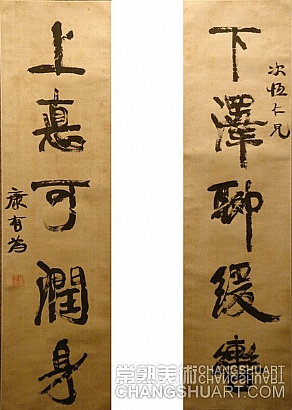 次恒仁兄
下澤聊緩轡
上悳可潤身
康有為
常熟美術 CHANGSHUART
CHANGSHUART.COM